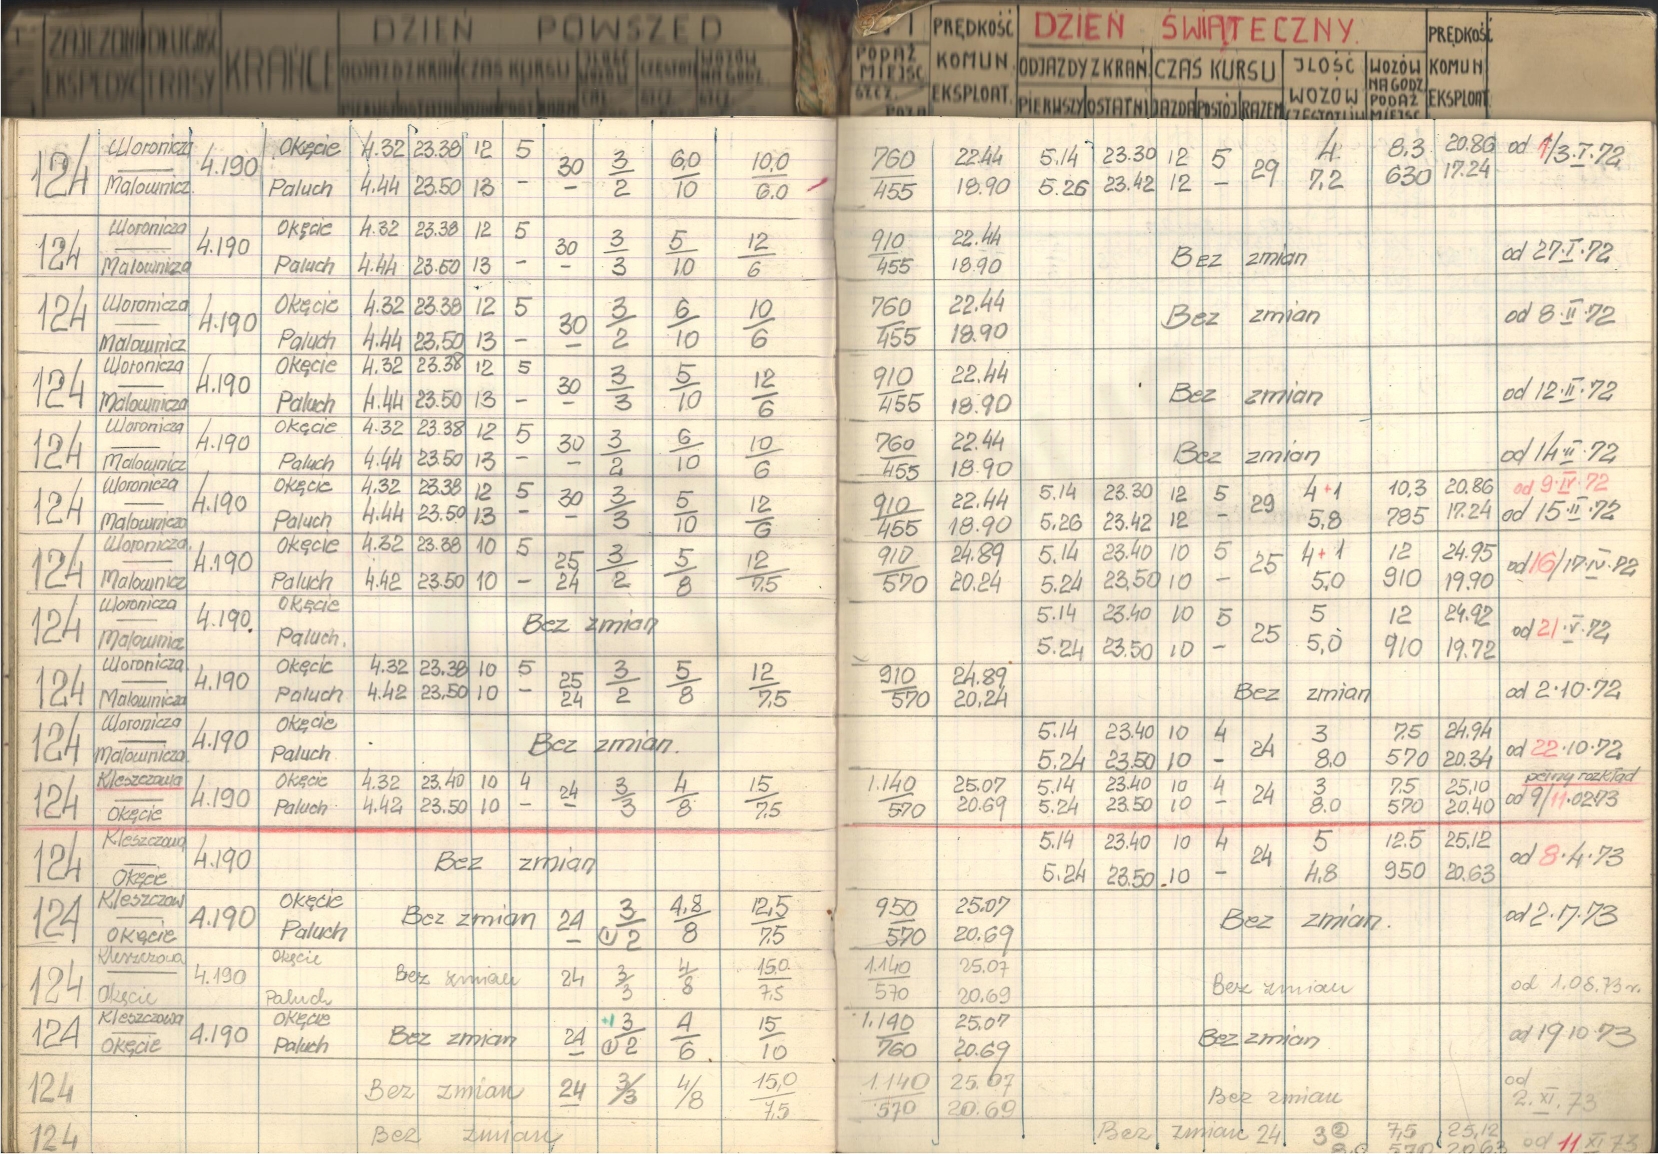 ZAJEZDNIA DŁUGOŚĆ KRAŃCE DZIEŃ POWSZED
EKSPEDYC TRASY ODJAZDY Z KRAŃ CZAS KURSU ILOŚĆ WOZÓW CZĘSTOT WOZÓW NA GODZ.
PODAŻ MIEJSC SZCZ. PRĘDKOŚĆ KOMUN. EKSPLOAT. DZIEŃ ŚWIĄTECZNY. PRĘDKOŚĆ KOMUN. EKSPLOAT.
ODJAZDY Z KRAŃ. CZAS KURSU ILOŚĆ WOZÓW WOZÓW NA GODZ. PODAŻ MIEJSC
PIERWSZY OSTATNI JAZDA POSTÓJ RAZEM
124 Woronicza 4.190 Okęcie 4.32 23.38 12 5 30 3 6,0 10,0 760 22.44 5.14 23.30 12 5 29 4 8,3 20.86 od 1/3.I.72
Malownicz. Paluch 4.44 23.50 13 - - 2 10 6.0 455 18.90 5.26 23.42 12 - 7,2 630 17.24
124 Woronicza 4.190 Okęcie 4.32 23.38 12 5 30 3 5 12 910 22.44 Bez zmian od 27.I.72
Malownicza Paluch 4.44 23.50 13 - - 3 10 6 455 18.90
124 Woronicza 4.190 Okęcie 4.32 23.38 12 5 30 3 6 10 760 22.44 Bez zmian od 8.II.72
Malownicz Paluch 4.44 23.50 13 - - 2 10 6 455 18.90
124 Woronicza 4.190 Okęcie 4.32 23.38 12 5 30 3 5 12 910 22.44 Bez zmian od 12.II.72
Malownicza Paluch 4.44 23.50 13 - - 3 10 6 455 18.90
124 Woronicza 4.190 Okęcie 4.32 23.38 12 5 30 3 6 10 760 22.44 Bez zmian od 14.II.72
Malownicz Paluch 4.44 23.50 13 - - 2 10 6 455 18.90
124 Woronicza 4.190 Okęcie 4.32 23.38 12 5 30 3 5 12 910 22.44 5.14 23.30 12 5 29 4+1 10,3 20.86 od 9.IV.72
Malownicza Paluch 4.44 23.50 13 - - 3 10 6 455 18.90 5.26 23.42 12 - 5,8 785 17.24 od 15.II.72
124 Woronicza 4.190 Okęcie 4.32 23.38 10 5 25 3 5 12 910 24.89 5.14 23.40 10 5 25 4+1 12 24.95 od 16/17.IV.72
Malownicz Paluch 4.42 23.50 10 - 24 2 8 7,5 570 20.24 5.24 23.50 10 - 5,0 910 19.90
124 Woronicza 4.190. Okęcie Bez zmian 5.14 23.40 10 5 25 5 12 24.92 od 21.V.72
Malownicz Paluch. 5.24 23.50 10 - 5,0 910 19.72
124 Woronicza 4.190 Okęcie 4.32 23.38 10 5 25 3 5 12 910 24.89 Bez zmian od 2.10.72
Malownicza Paluch 4.42 23.50 10 - 24 2 8 7,5 570 20.24
124 Woronicza 4.190 Okęcie Bez zmian. 5.14 23.40 10 4 24 3 7.5 24.94 od 22.10.72
Malownicza Paluch 5.24 23.50 10 - 8,0 570 20.34
124 Kleszczowa 4.190 Okęcie 4.32 23.40 10 4 24 3 4 15 1.140 25.07 5.14 23.40 10 4 24 3 7.5 25,10 pełny rozkład
Okęcie Paluch 4.42 23.50 10 - - 3 8 7,5 570 20.69 5.24 23.50 10 - 8.0 570 20.40 od 9/11.0273
124 Kleszczowa 4.190 Bez zmian 5.14 23.40 10 4 24 5 12.5 25,12 od 8.4.73
Okęcie 5.24 23.50 10 - 4,8 950 20.63
124 Kleszczow 4.190 Okęcie Bez zmian 24 3 4,8 12,5 950 25.07 Bez zmian. od 2.7.73
Okęcie Paluch - ① 2 8 7,5 570 20.69
124 Kleszczowa 4.190 Okęcie Bez zmian 24 3 4 15,0 1.140 25.07 Bez zmian od 1.08.73r.
Okęcie Paluch 3 8 7,5 570 20.69
124 Kleszczowa 4.190 Okęcie Bez zmian 24 +1 3 4 15 1.140 25.07 Bez zmian od 19.10.73
Okęcie Paluch - ① 2 6 10 760 20.69
124 Bez zmian 24 3/3 4/8 15,0 1.140 25.07 Bez zmian od
7,5 570 20.69 2.XI.73
124 Bez zmian Bez zmian 24 3② 7,5 25,12 od 11 XI 73
570 20,63